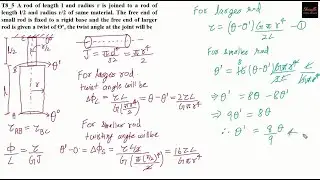 TS_5 A rod of length l and radius r is joined to a rod of
length l/2 and radius r/2 of same material. The free end of
small rod is fixed to a rigid base and the free end of larger
rod is given a twist of Θ°, the twist angle at the joint will be
J = πD⁴/32 = πr⁴/2
For larger rod
twist angle will be
Δφ₁ = τL/G(πr⁴/2) = θ-θ' = 2τL/Gπr⁴
For smaller rod
twisting angle will be
θ'-0 = Δφₛ = τL/2/G(π(r/2)⁴/2) = 16τL/Gπr⁴
τAB = τBC
φ/L = τ/GJ
For larger rod
τ = (θ-θ')Gπr⁴/2L -①
For smaller rod
⇒ θ' = 8θ - 8θ'
⇒ 9θ' = 8θ